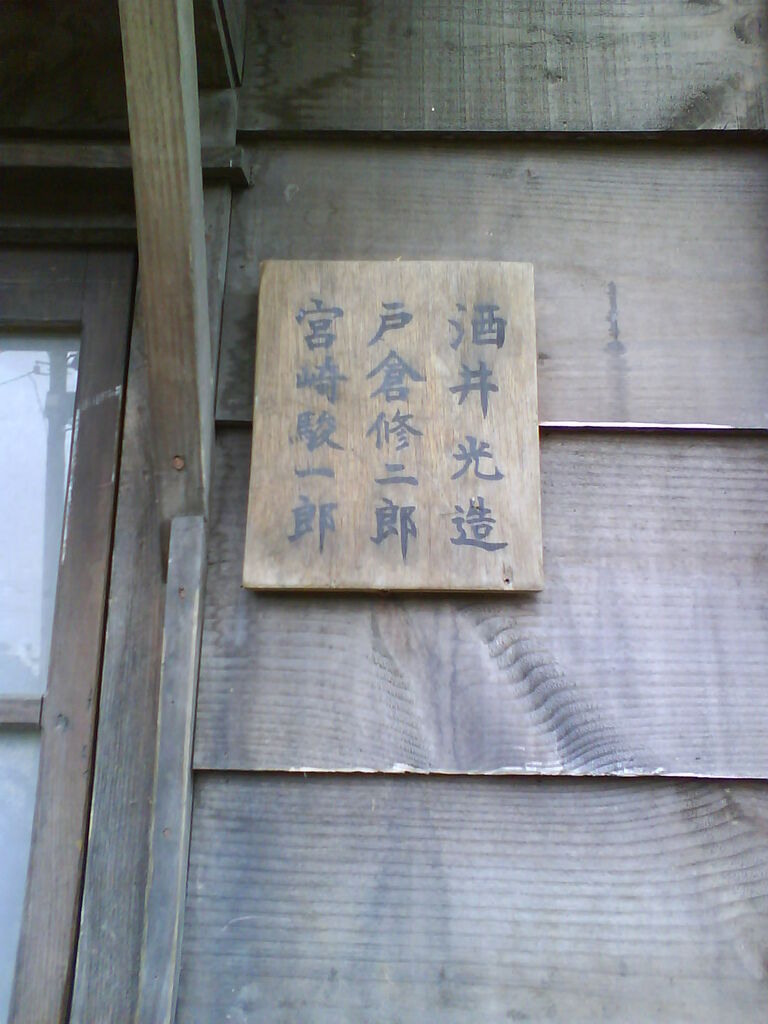 酒井光造
戸倉修二郎
宮崎駿一郎